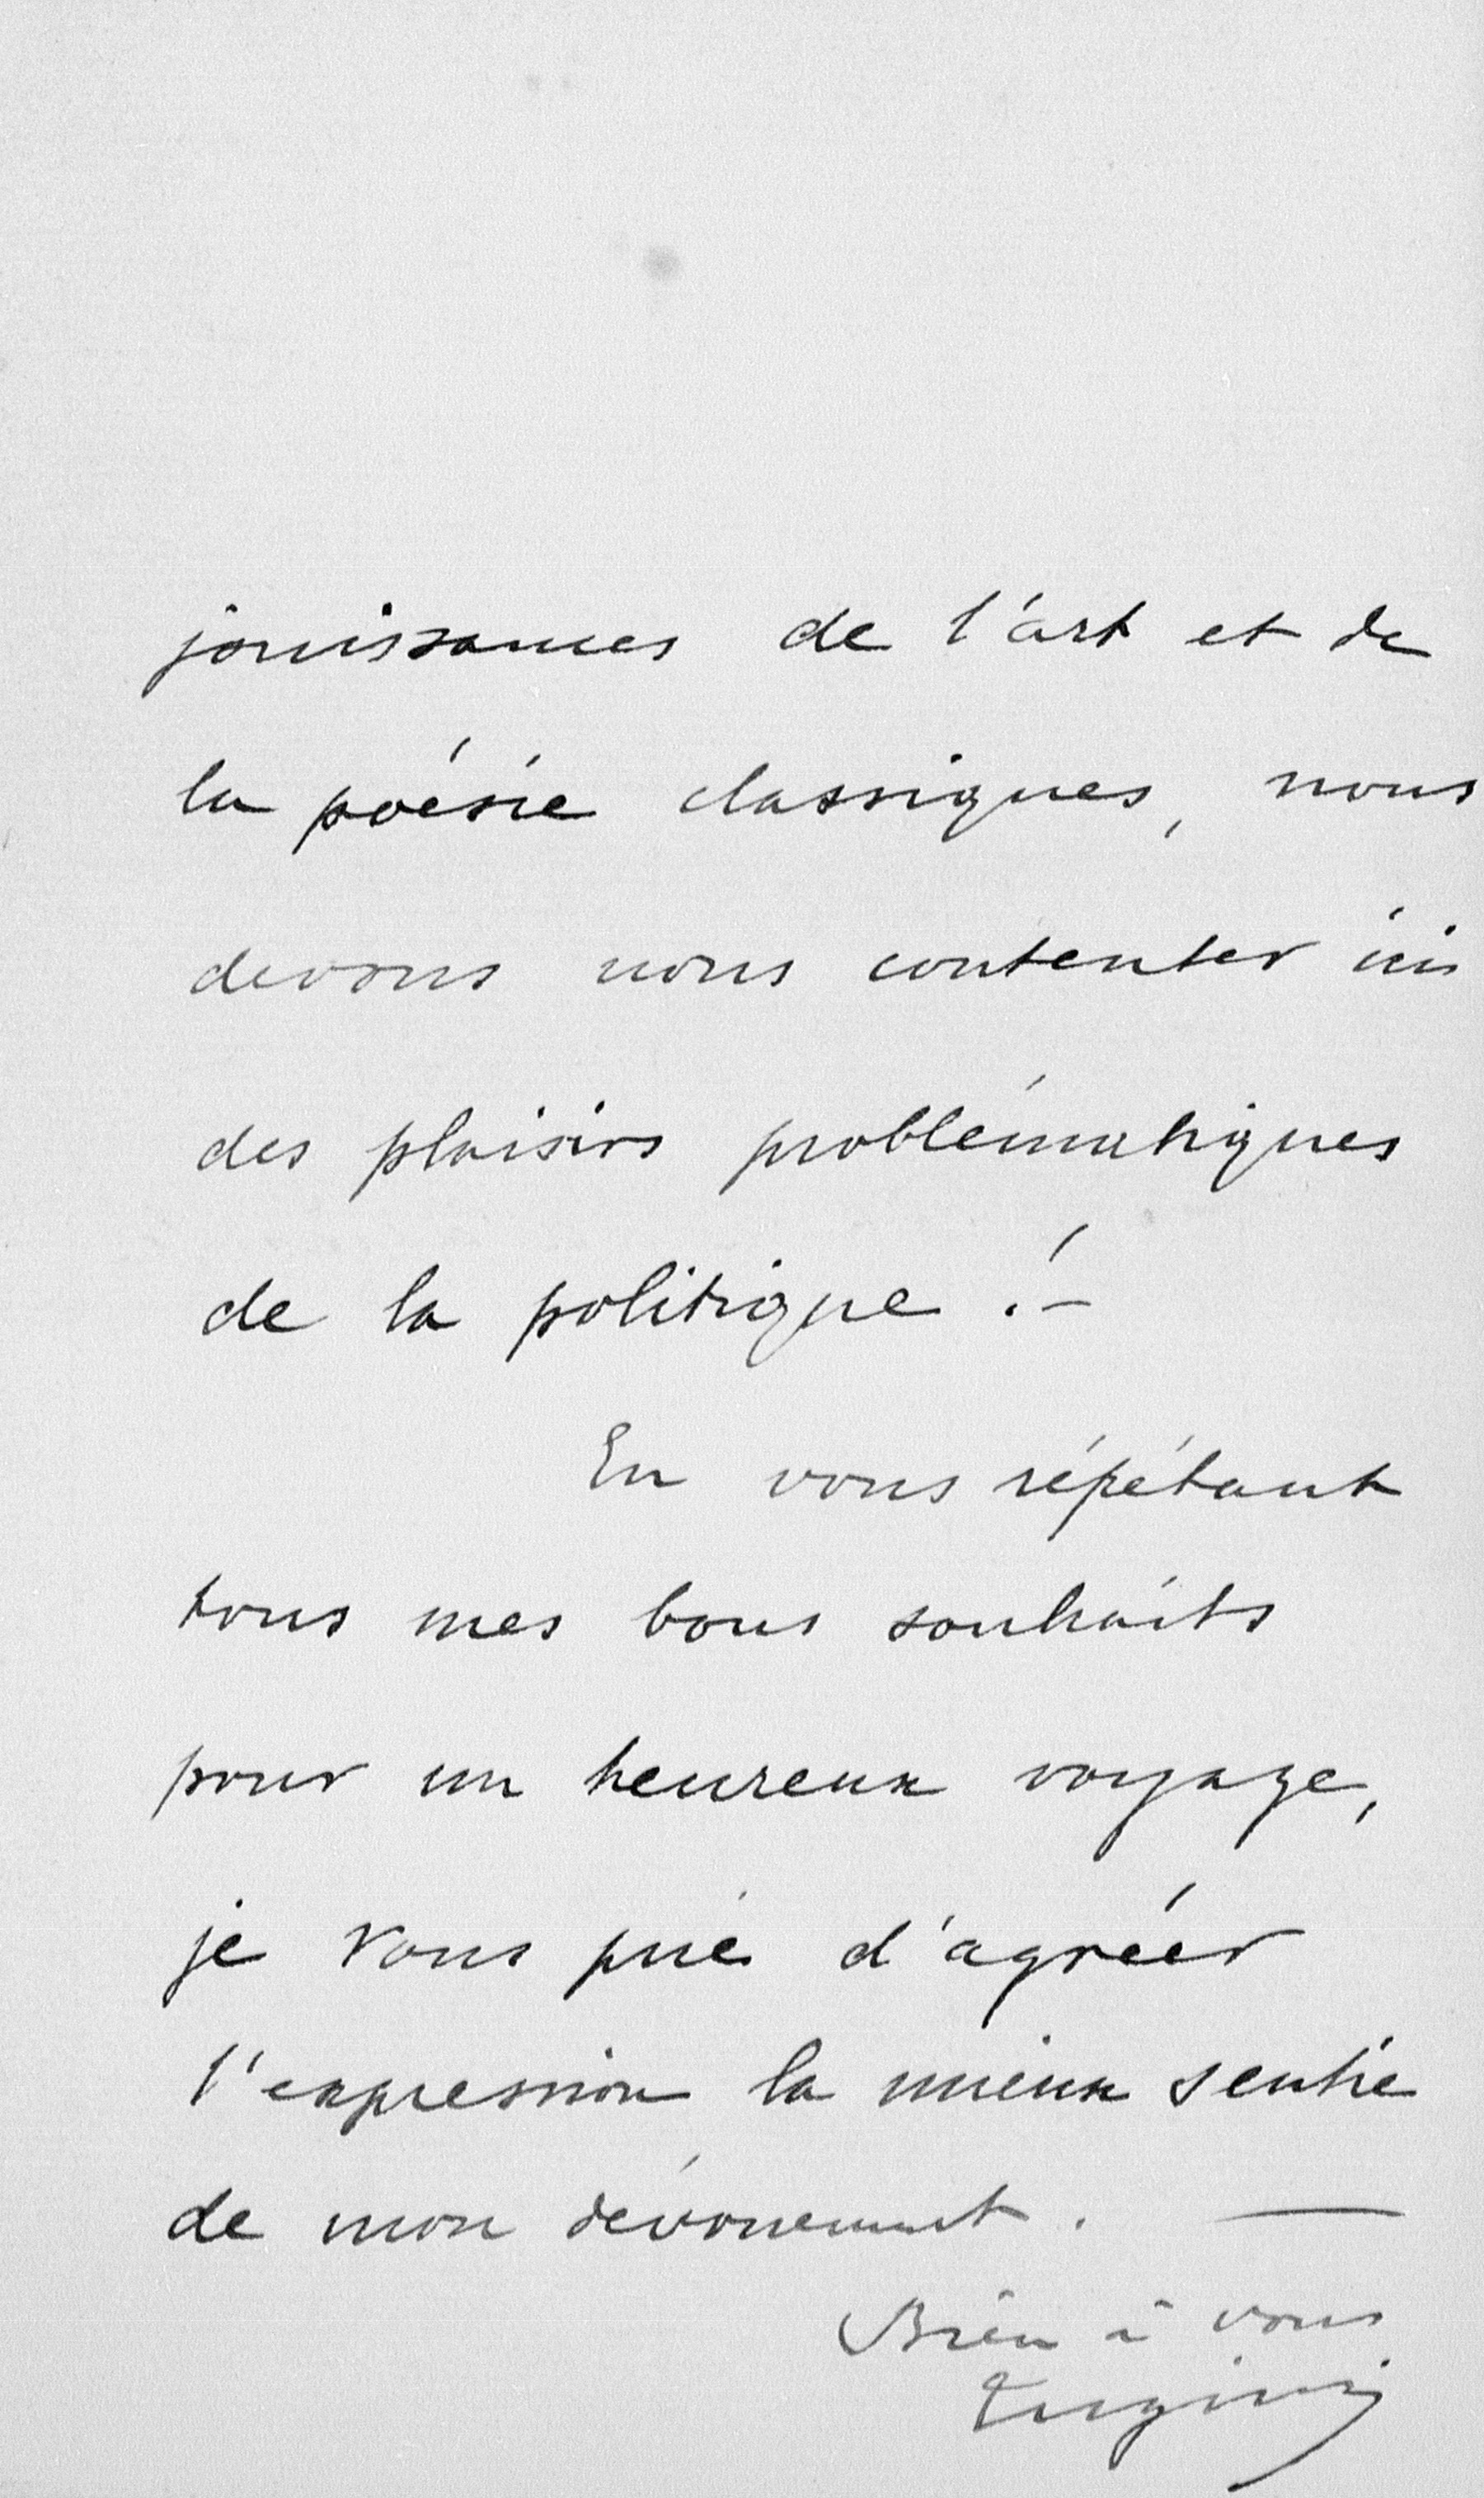 jouissances de l'art et de
la poésie classiques, nous
devons nous contenter ici
des plaisirs problématiques
de la politique ! –
En vous répétant
tous mes bons souhaits
pour un heureux voyage,
je vous prie d'agréer
l'expression la mieux sentie
de mon dévouement. —
Bien à vous